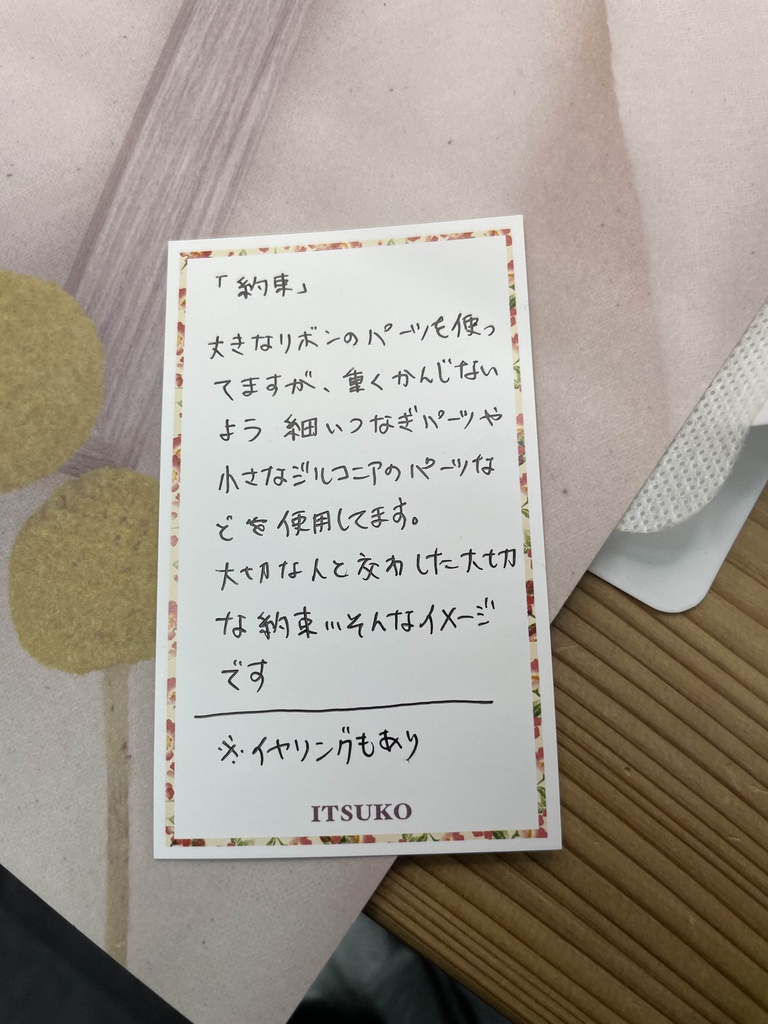 「約束」
大きなリボンのパーツを使っ
てますが、重くかんじない
よう 細いつなぎパーツや
小さなジルコニアのパーツな
どを使用してます。
大切な人と交わした大切
な約束…そんなイメージ
です
※イヤリングもあり
ITSUKO